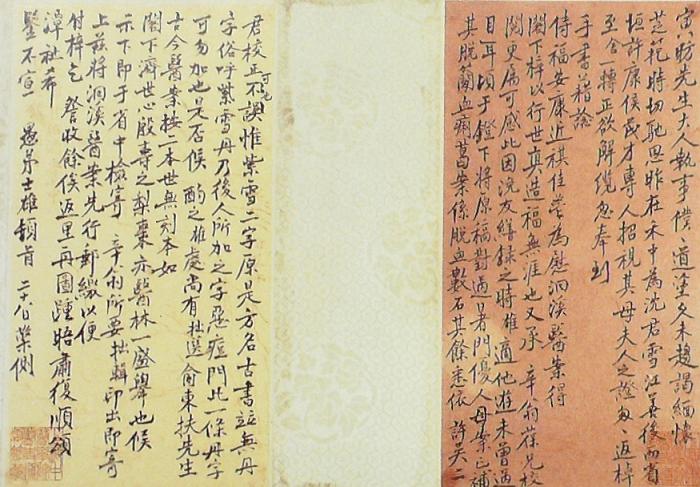 寅昉先生大人執事僕道塗久未趨謁緬懷
芝範時切馳思昨在禾中為沈君雪江善後而省
垣許康侯茂才專人招視其母夫人之證 返棹
至舍一轉正欲解纜忽奉到
手書藉諗
侍福安康近祺佳鬯為慰洄溪醫案得
閣下梓以行世真造福無涯也又承 辛翁葆兄校
閱更為可感此因浣友繕錄之時雄適他遊未曾過
目耳頃于鐙下將原稿對過暑門優人母案已補
其脫簡血痢葛案係脫血數石其餘悉依 許吳二
君校正可也不誤惟紫雪二字原是方名古書竝無丹
字俗呼紫雪丹乃後人所加之字惡痘門此一條丹字
可勿加也是否候 酌之雄處尚有拙選俞東扶先生
古今醫案按一本世無刻本如
閣下濟世心殷壽之梨棗亦醫林一盛舉也候
示下即于省中檢寄 辛翁所要拙輯印出即寄
上茲將洄溪醫案先行郵繳以便
付梓乞 詧收餘俟返里再圖踵晤肅復順頌
潭祉希
鑒不宣 愚弟士雄頓首 二十八日 側